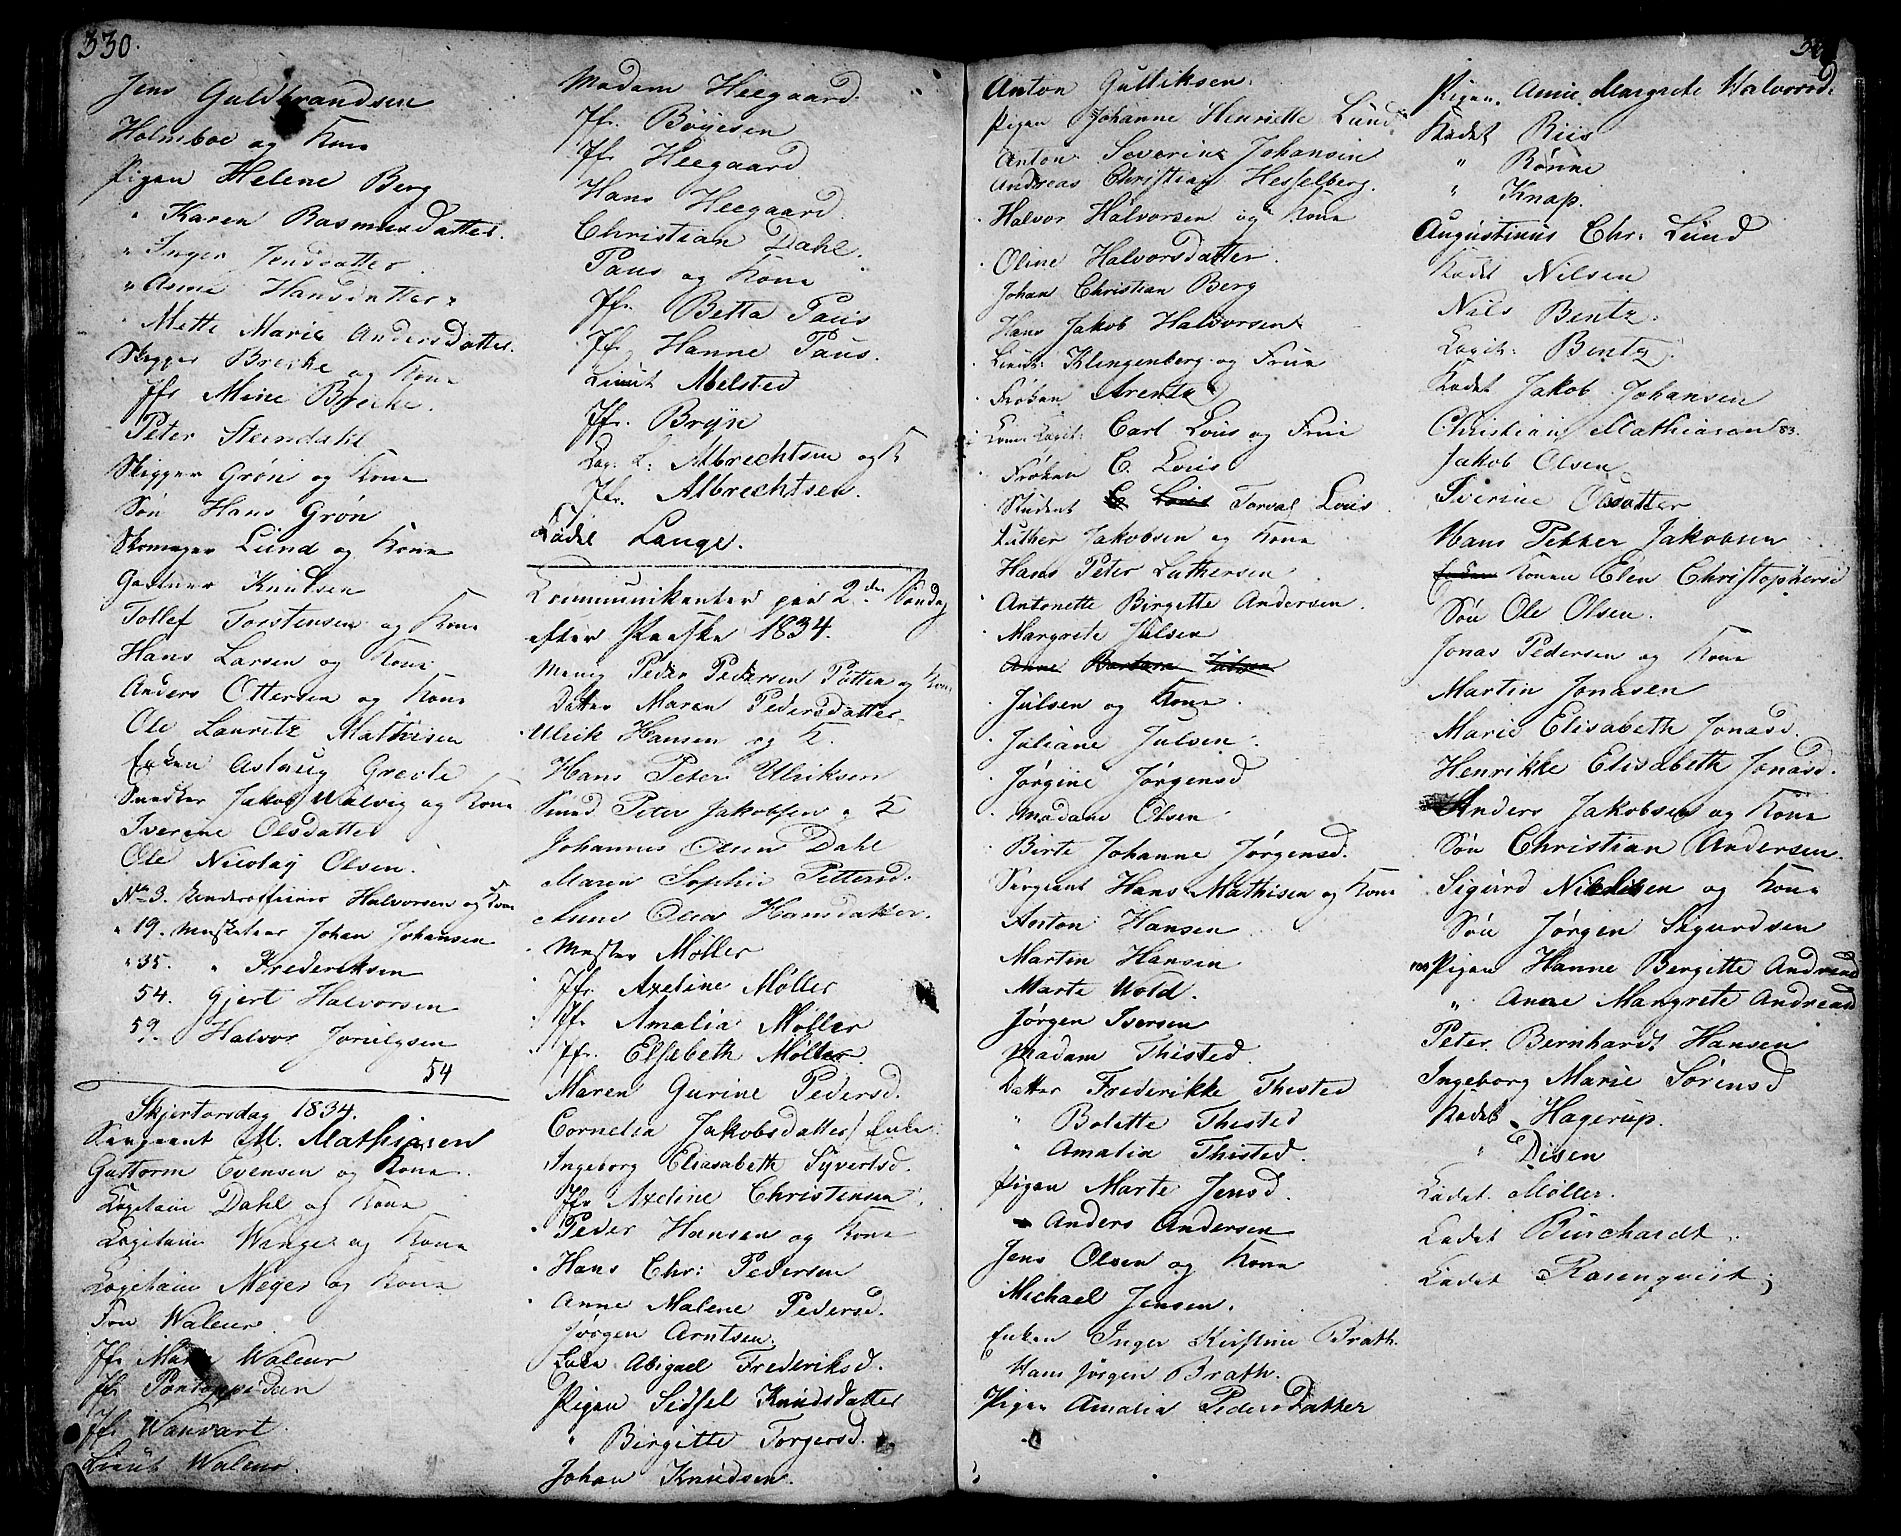 330.
Jens Guldbrandsen
Holmboe og Kone
Pigen Helene Berg
" Karen Rasmusdatter.
" Inger Jensdatter
" Anne Hansdatter
" Mette Marie Andersdatter.
Skipper Brecke og Kone
Jfr Mine Brecke.
Peter Steindahl
Skipper Grøn og Kone
Søn Hans Grøn
Skomager Lund og Kone
Gartner Knudsen
Tollef Torstensen og Kone
Hans Larsen og Kone
Anders Ottersen og Kone
Ole Lauritz Mathisen
Enken Aslaug Grevle
Snedker Jakob Walvig og Kone
Iverine Olsdatter
Ole Nicolay Olsen.
No 3. Underofficier Halvorsen og Kone
" 19. Musketeer Johan Johansen
" 35. " Frederiksen
54. Gjert Halvorsen
59. Halvor
54
Skjertorsdag 1834.
Sergeant M. Mathiesen
Guttorm Evensen og Kone
Capitain Dahl og Kone
Capitain Winge og Kone
Capitain Meyer og Kone
Fru Waleur
Jfr Marie Waleur
Jfr Pontoppidan
Jfr
Lieut Waleur.
Madam Heegaard.
Jfr. Boyesen
Jfr. Heegaard
Hans Heegaard.
Christian Dahl.
Paus og Kone
Jfr. Betta Paus
Jfr. Hanne Paus.
Lieut Abelsted
Jfr. Bryn
Cap. L: Albrechtsen og K
Jfr. Albrechtsen.
Kadet Lange.
Communikanter paa 2den Søndag
efter Paaske 1834.
Menig Peder Pedersen Potten og Kone
Datter Maren Pedersdatter.
Ulrik Hansen og K.
Hans Peter Ulriksen
Smed Peter Jakobsen og K
Johannes Olsen Dahl
Maren Sophie Pettersd.
Anne Olea Hansdatter.
Mester Møller
Jfr. Axeline Møller
Jfr. Amalia Møller
Jfr. Elsebeth Møller.
Maren Gurine Pedersd.
Cornelia Jakobsdatter / Enke
Ingeborg Eliasabeth Syvertsd.
Jfr Axeline Christensen
Peder Hansen og Kone
Hans Chr: Pedersen
Anne Malene Pedersd.
Jørgen Arntsen
Enke Abigael Frederiksd.
Pigen Sidsel Knudsdatter
" Birgitte Torgersd.
Johan Knudsen.
Anton Gulliksen.
Pigen Johanne Henriette Lund
Anton Severin Johansen
Andreas Christian Hesselberg.
Halvor Halvorsen og Kone
Oline Halvorsdatter.
Johan Christian Berg
Hans Jakob Halvorsen
Lieut: Klingenberg og Frue
Frøken Arentz
Capit: Carl Lous og Frue
Frøken C. Lous
Student Torval Lous
Luther Jakobsen og Kone
Hans Peter Luthersen
Antonette Birgitte Andersen.
Margrete Julsen
Anne Barbara Julsen
Julsen og Kone.
Juliane Julsen.
Jørgine Jørgensd
Madam Olsen
Birte Johanne Jørgensd.
Sergeant Hans Mathisen og Kone
Anton Hansen
Martin Hansen
Marte Wold.
Jørgen Iversen
Madam Thisted
Datter Frederikke Thisted
" Bolette Thisted
" Amalia Thisted.
Pigen Marte Jensd.
Anders Andersen
Jens Olsen og Kone
Michael Jensen.
Enken Inger Kirstine Brath.
Hans Jørgen Brath.
Pigen Amalia Pedersdatter
Pigen Anne Margrete Halvorsd.
Kadet Riis
" Rønne
" Knap.
Augustinus Chr: Lund
Kadet Nilsen
Nils Bentz.
Capit: Bentz
Kadet Jakob Johansen
Christian Mathiasen 83.
Jakob Olsen
Iverine Olsdatter
Hans Petter Jakobsen
Enken Konen Elen Christophersd
Søn Ole Olsen.
Jonas Pedersen og Kone
Martin Jonasen
Marie Elisabeth Jonasd.
Henrikke Elisabeth Jonasd.
Anders Jakobsen og Kone
Søn Christian Andersen.
Sigurd Nilsen og Kone
Søn Jørgen Sigurdsen
100 Pigen Hanne Bergitte Andreasd
" Anne Margrete Andreasd
Peter Bernhardt Hansen
Ingeborg Marie Sørensd
Kadet Hagerup.
" Disen
Cadet Møller.
Cadet Burchardt
Cadet Rosenqvist